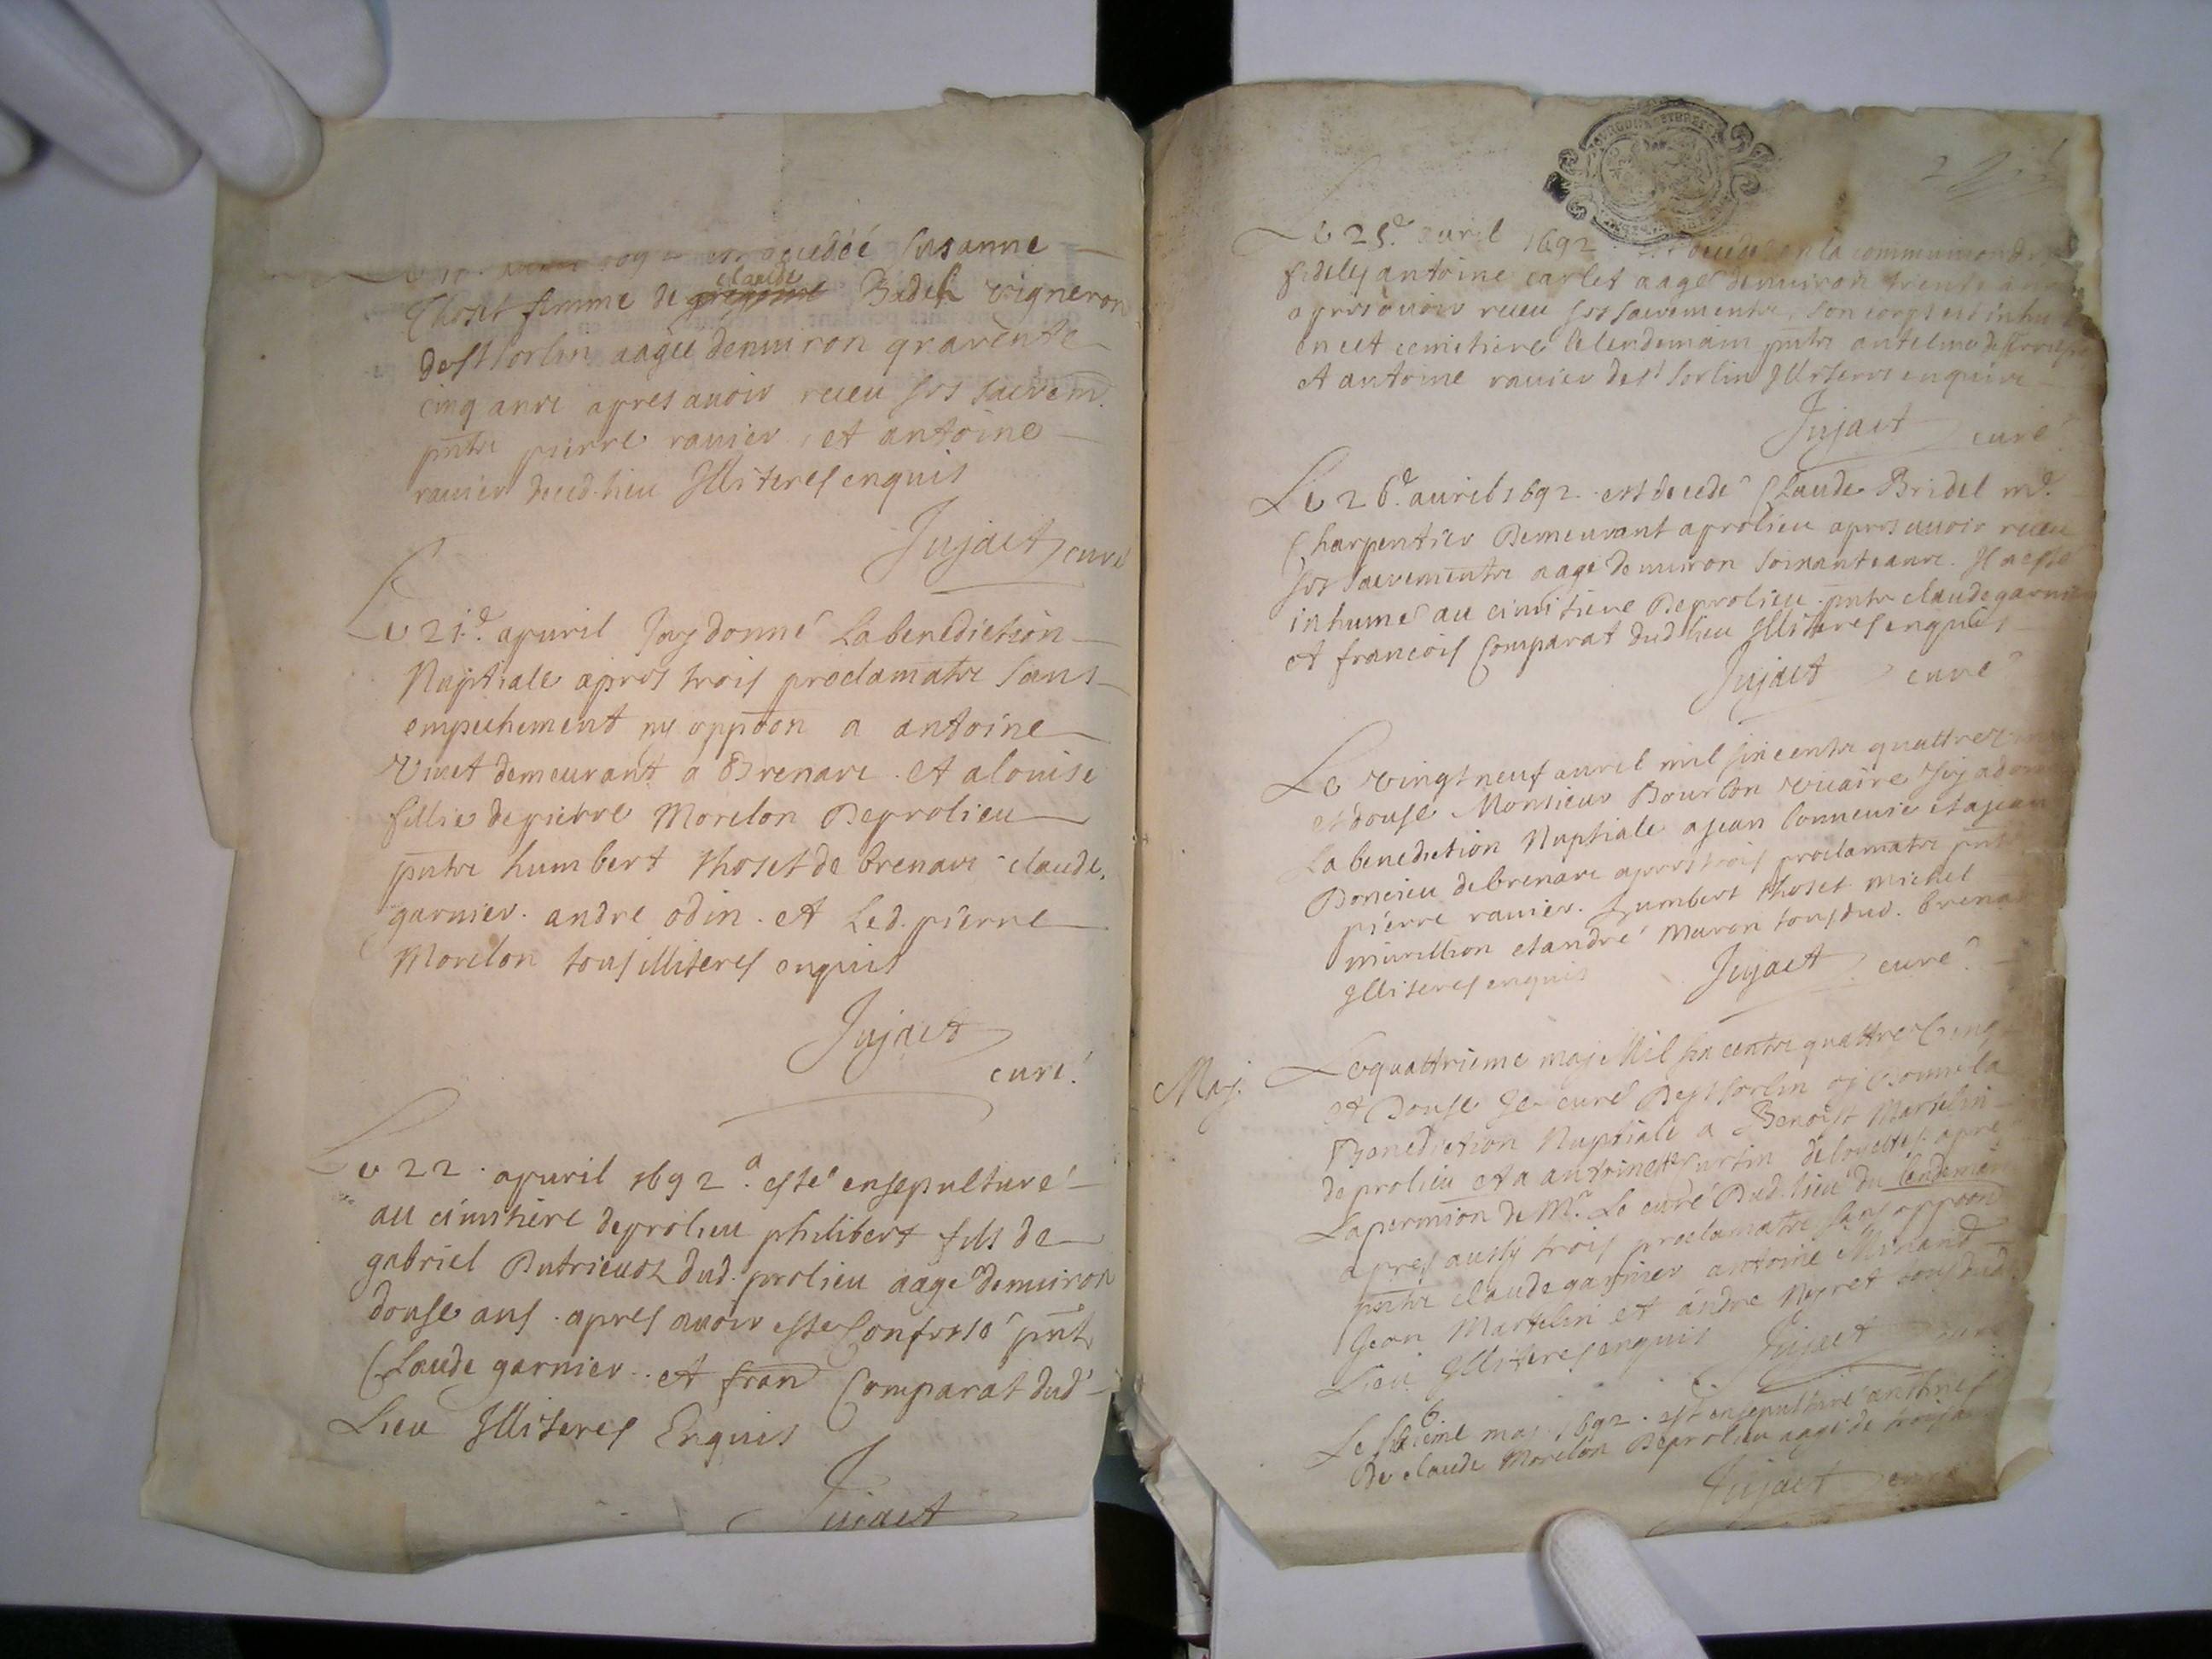 est decedée Susanne
Thoset femme de claude Badel vigneron
de St Sorlin aagée denviron quarente
cinq ans apres avoir receu ses sacrem.
pntz pierre ravier et antoine
ravier deced. lieu Illiteres enquis
Jujact curé
Le 21.e apvril Jay donné La benediction
Nuptiale apres trois proclamatz sans
empechement ny oppoon a antoine
Vivet demeurant a Brenaz et a louise
fillie de pierre Morelon De prolieu
pntz humbert thoset de brenaz claude
garnier. andre odin. et Led. pierre
Morelon tous illiteres enquis
Jujact
curé.
Le 22. apvril 1692. a esté ensepulturé
au cimitiere de prolieu philibert fils de
gabriel Dutrieuoz dud. prolieu aagé denviron
douse ans. apres avoir esté Confessé pnt
Claude garnier. et fran Comparat dud
Lieu Illiteres Enquis
Jujact
Le 25.e avril 1692. la communion des
fideles antoine carlet aagé denviron trente
apres avoir receu ses sacrementz, son corps est
en cet cemitiere le lendemain pntz antelme
et antoine ravier de st sorlin Illiteres enquis
Jujact curé
Le 26.e avril 1692. est decedé Claude Bridel m.e
Charpentier Demeurant a prolieu apres avoir receu
ses sacrementz aagé denviron soixante ans. Il a esté
inhumé au cimitiere De prolieu. pntz claude garnier
et francois Comparat dud lieu Illiteres enquis
Jujact curé
Le vingt neuf avril mil six centz quattre
et douse Monsieur Bourbon vicaire
La benediction Nuptiale a jean
Doncieu de brenaz apres trois proclamatz
pierre ravier. humbert thoset michel
murillion et andré Maron tous dud. brenaz
Illiteres enquis Jujact curé
Maj. Le quattrieme maj Mil six centz quattre vingt
et Douse Je curé De st sorlin aj Donné la
Benediction Nuptiale a Benoist Martelin
de prolieu et a antoinette
La permion de Mr. Le curé Dud. lieu du lendemain
apres aussy trois proclamatz sans oppoon
pntz claude garnier antoine
Jean Martelin et andre Neyret tous dud.
Lieu Illiteres enquis Jujact curé
Le 6 sixieme maj 1692. est ensepulturé
de claude Morelon De prolieu aagé de
Jujact curé